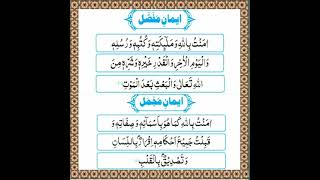 ايمان مفصل
اٰمَنْتُ بِاللّٰهِ وَمَلٰٓئِكَتِهٖ وَكُتُبِهٖ وَرُسُلِهٖ
وَالْيَوْمِ الْاٰخِرِ وَالْقَدْرِ خَيْرِهٖ وَشَرِّهٖ مِنَ
اللّٰهِ تَعَالٰى وَالْبَعْثِ بَعْدَ الْمَوْتِ
ايمان مجمل
اٰمَنْتُ بِاللّٰهِ كَمَا هُوَ بِاَسْمَآئِهٖ وَصِفَاتِهٖ وَ
قَبِلْتُ جَمِيْعَ اَحْكَامِهٖ اِقْرَارٌۢ بِاللِّسَانِ
وَتَصْدِيْقٌۢ بِالْقَلْبِ